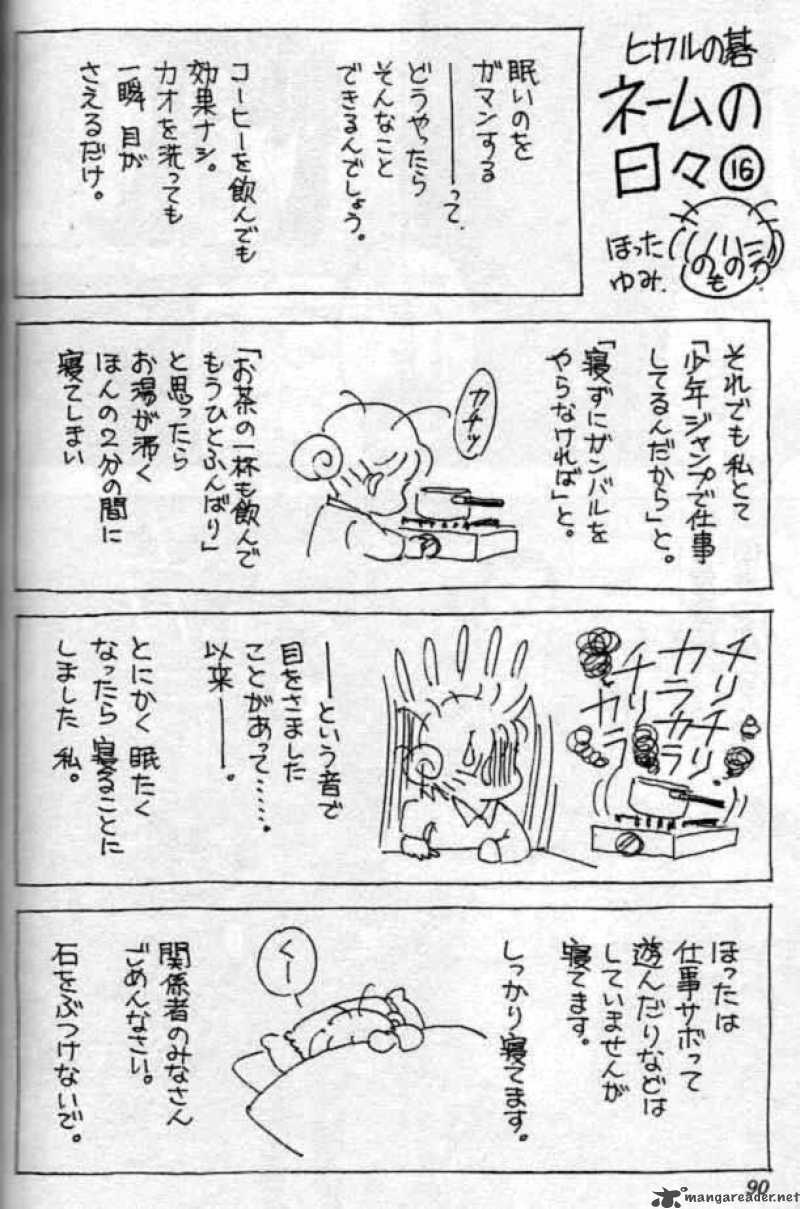 ヒカルの碁
ネームの
日々⑯
ほった
ゆみ.
眠いのを
ガマンする
――――って.
どうやったら
そんなこと
できるんでしょう。
コーヒーを飲んでも
効果ナシ。
カオを洗っても
一瞬 目が
さえるだけ。
それでも私とて
「少年ジャンプで仕事
してるんだから」と。
「寝ずにガンバルを
やらなければ」と。
カチッ
「お茶の一杯も飲んで
もうひとふんばり」
と思ったら
お湯が沸く
ほんの2分の間に
寝てしまい
チリチリ
カラカラ
チリ
カラ
――という音で
目をさました
ことがあって……。
以来――。
とにかく 眠たく
なったら 寝ることに
しました 私。
ほったは
仕事サボって
遊んだりなどは
していませんが
寝てます。
しっかり寝てます。
くー
関係者のみなさん
ごめんなさい。
石をぶつけないで。
90
mangareader.net